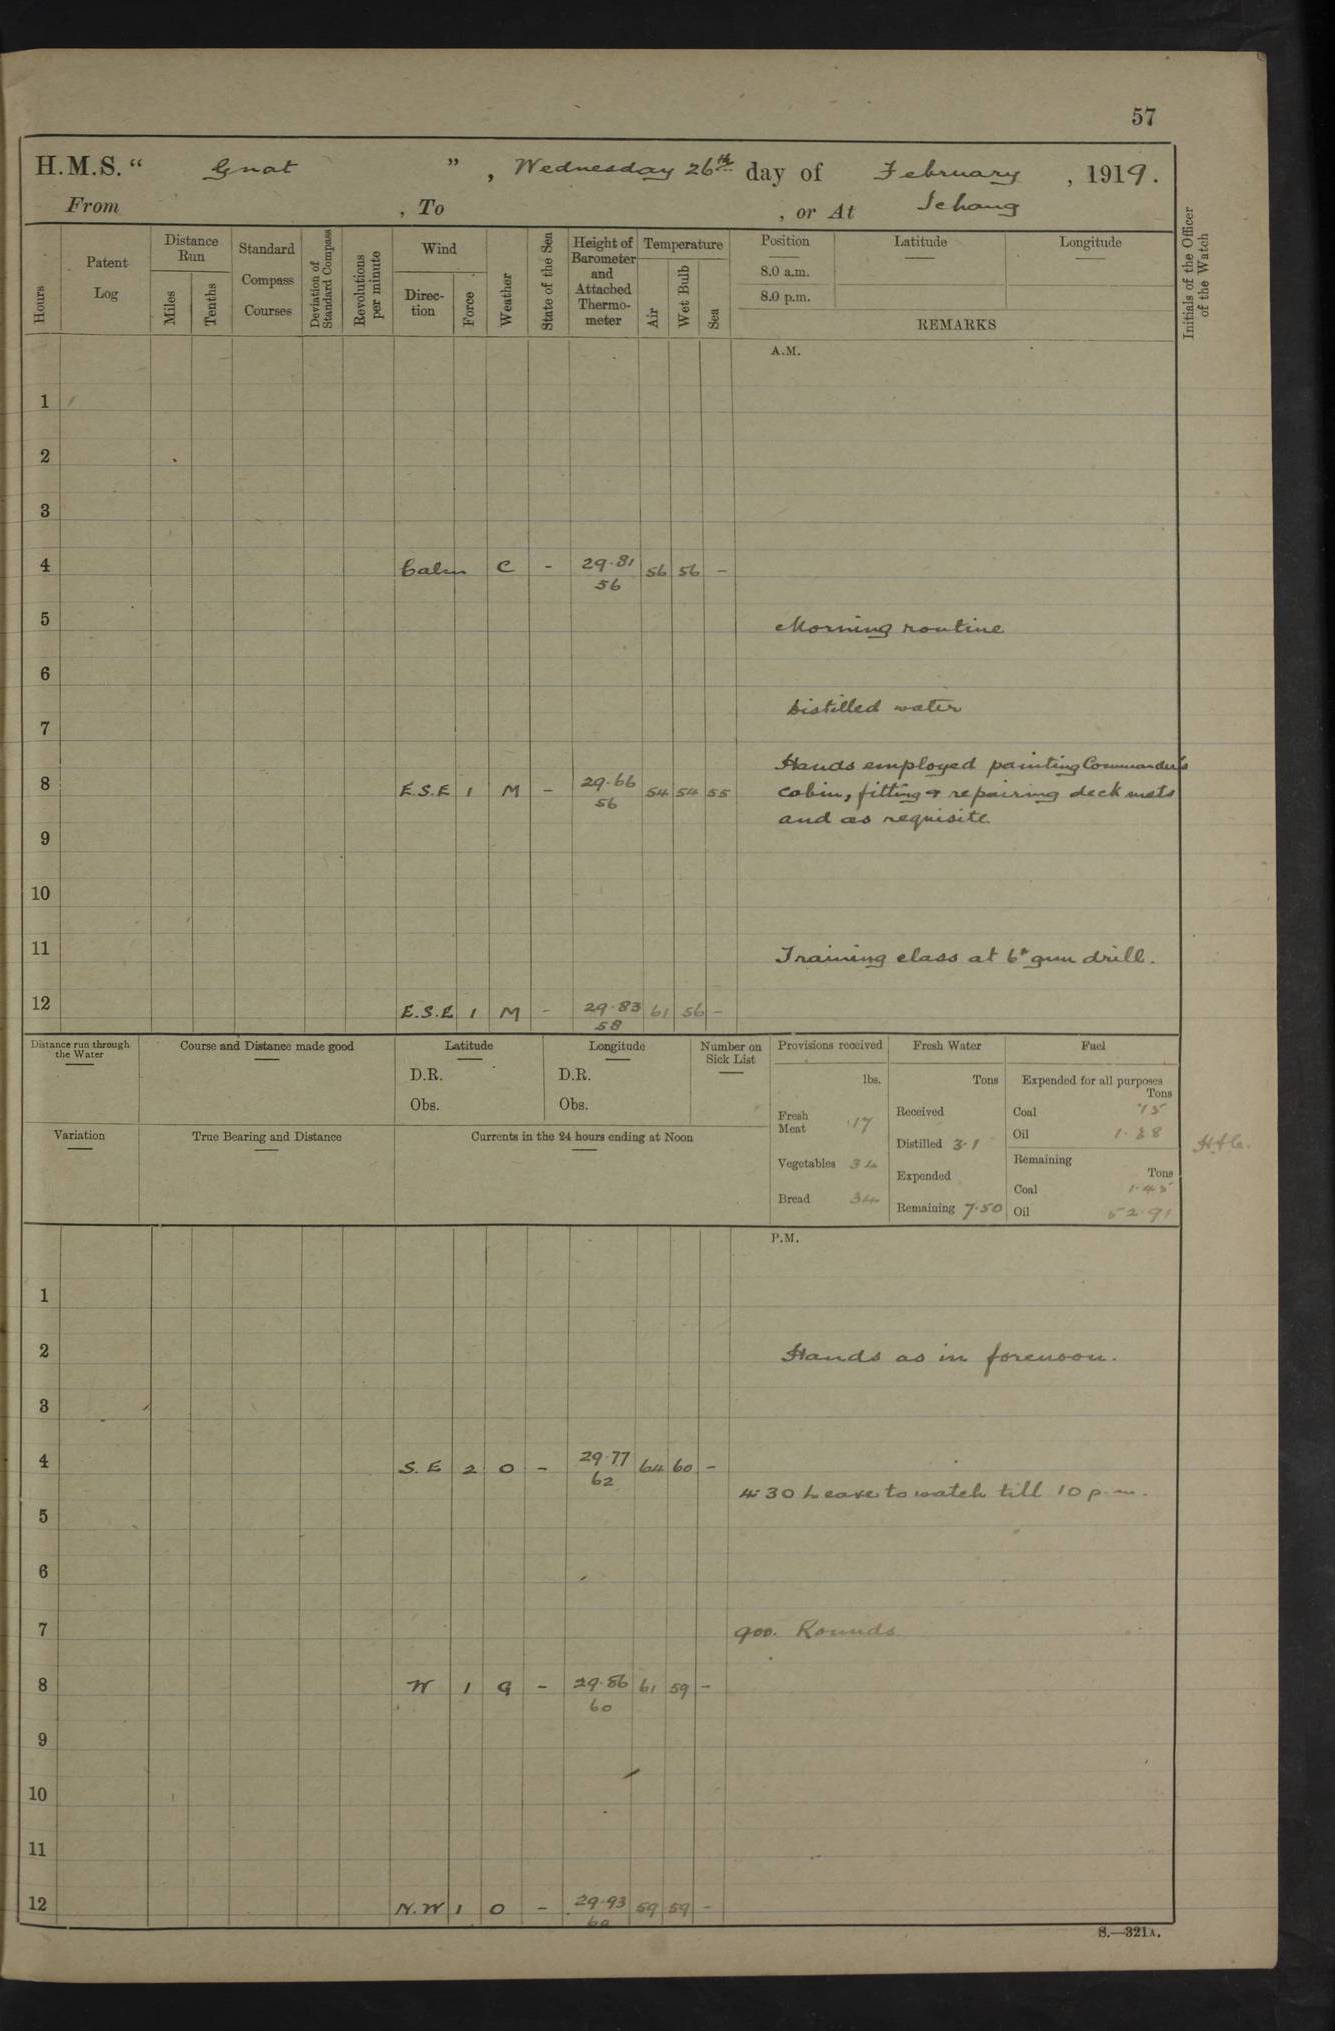 57
H.M.S. “ Gnat ” , Wednesday 26th day of February , 1919.
From , To , or At Ichang
Hours
Patent Log
Distance Run
Miles
Tenths
Standard Compass Courses
Deviation of Standard Compass
Revolutions per minute
Wind
Direction
Force
Weather
State of the Sea
Height of Barometer and Attached Thermometer
Temperature
Air
Wet Bulb
Sea
Position
8.0 a.m.
8.0 p.m.
Latitude
Longitude
REMARKS
Initials of the Officer of the Watch
A.M.
1
2
3
4 Calm C - 29.81 56 56 -
56
5 Morning routine
6
Distilled water
7
Hands employed painting Commander's
8 E.S.E 1 M - 29.66 54 54 55 cabin, fitting & repairing deck mats
56
and as requisite.
9
10
11 Training class at 6" gun drill.
12 E.S.E 1 M - 29.83 61 56 -
58
Distance run through the Water
Course and Distance made good
Latitude
D.R.
Obs.
Longitude
D.R.
Obs.
Number on Sick List
Provisions received
lbs.
Fresh Meat 17
Vegetables 34
Bread 34
Fresh Water
Tons
Received
Distilled 3.1
Expended
Remaining 7.50
Fuel
Expended for all purposes
Tons
Coal .15
Oil 1.38
Remaining
Tons
Coal 1.45
Oil 52.91
Variation
True Bearing and Distance
Currents in the 24 hours ending at Noon
P.M.
1
2 Hands as in forenoon.
3
4 S.E 2 O - 29.77 64 60 -
62
4.30 Leave to watch till 10 p.m.
5
6
7 900. Rounds
8 W 1 G - 29.86 61 59 -
60
9
10
11
12 N.W 1 O - 29.93 59 59 -
60
S.—321A.